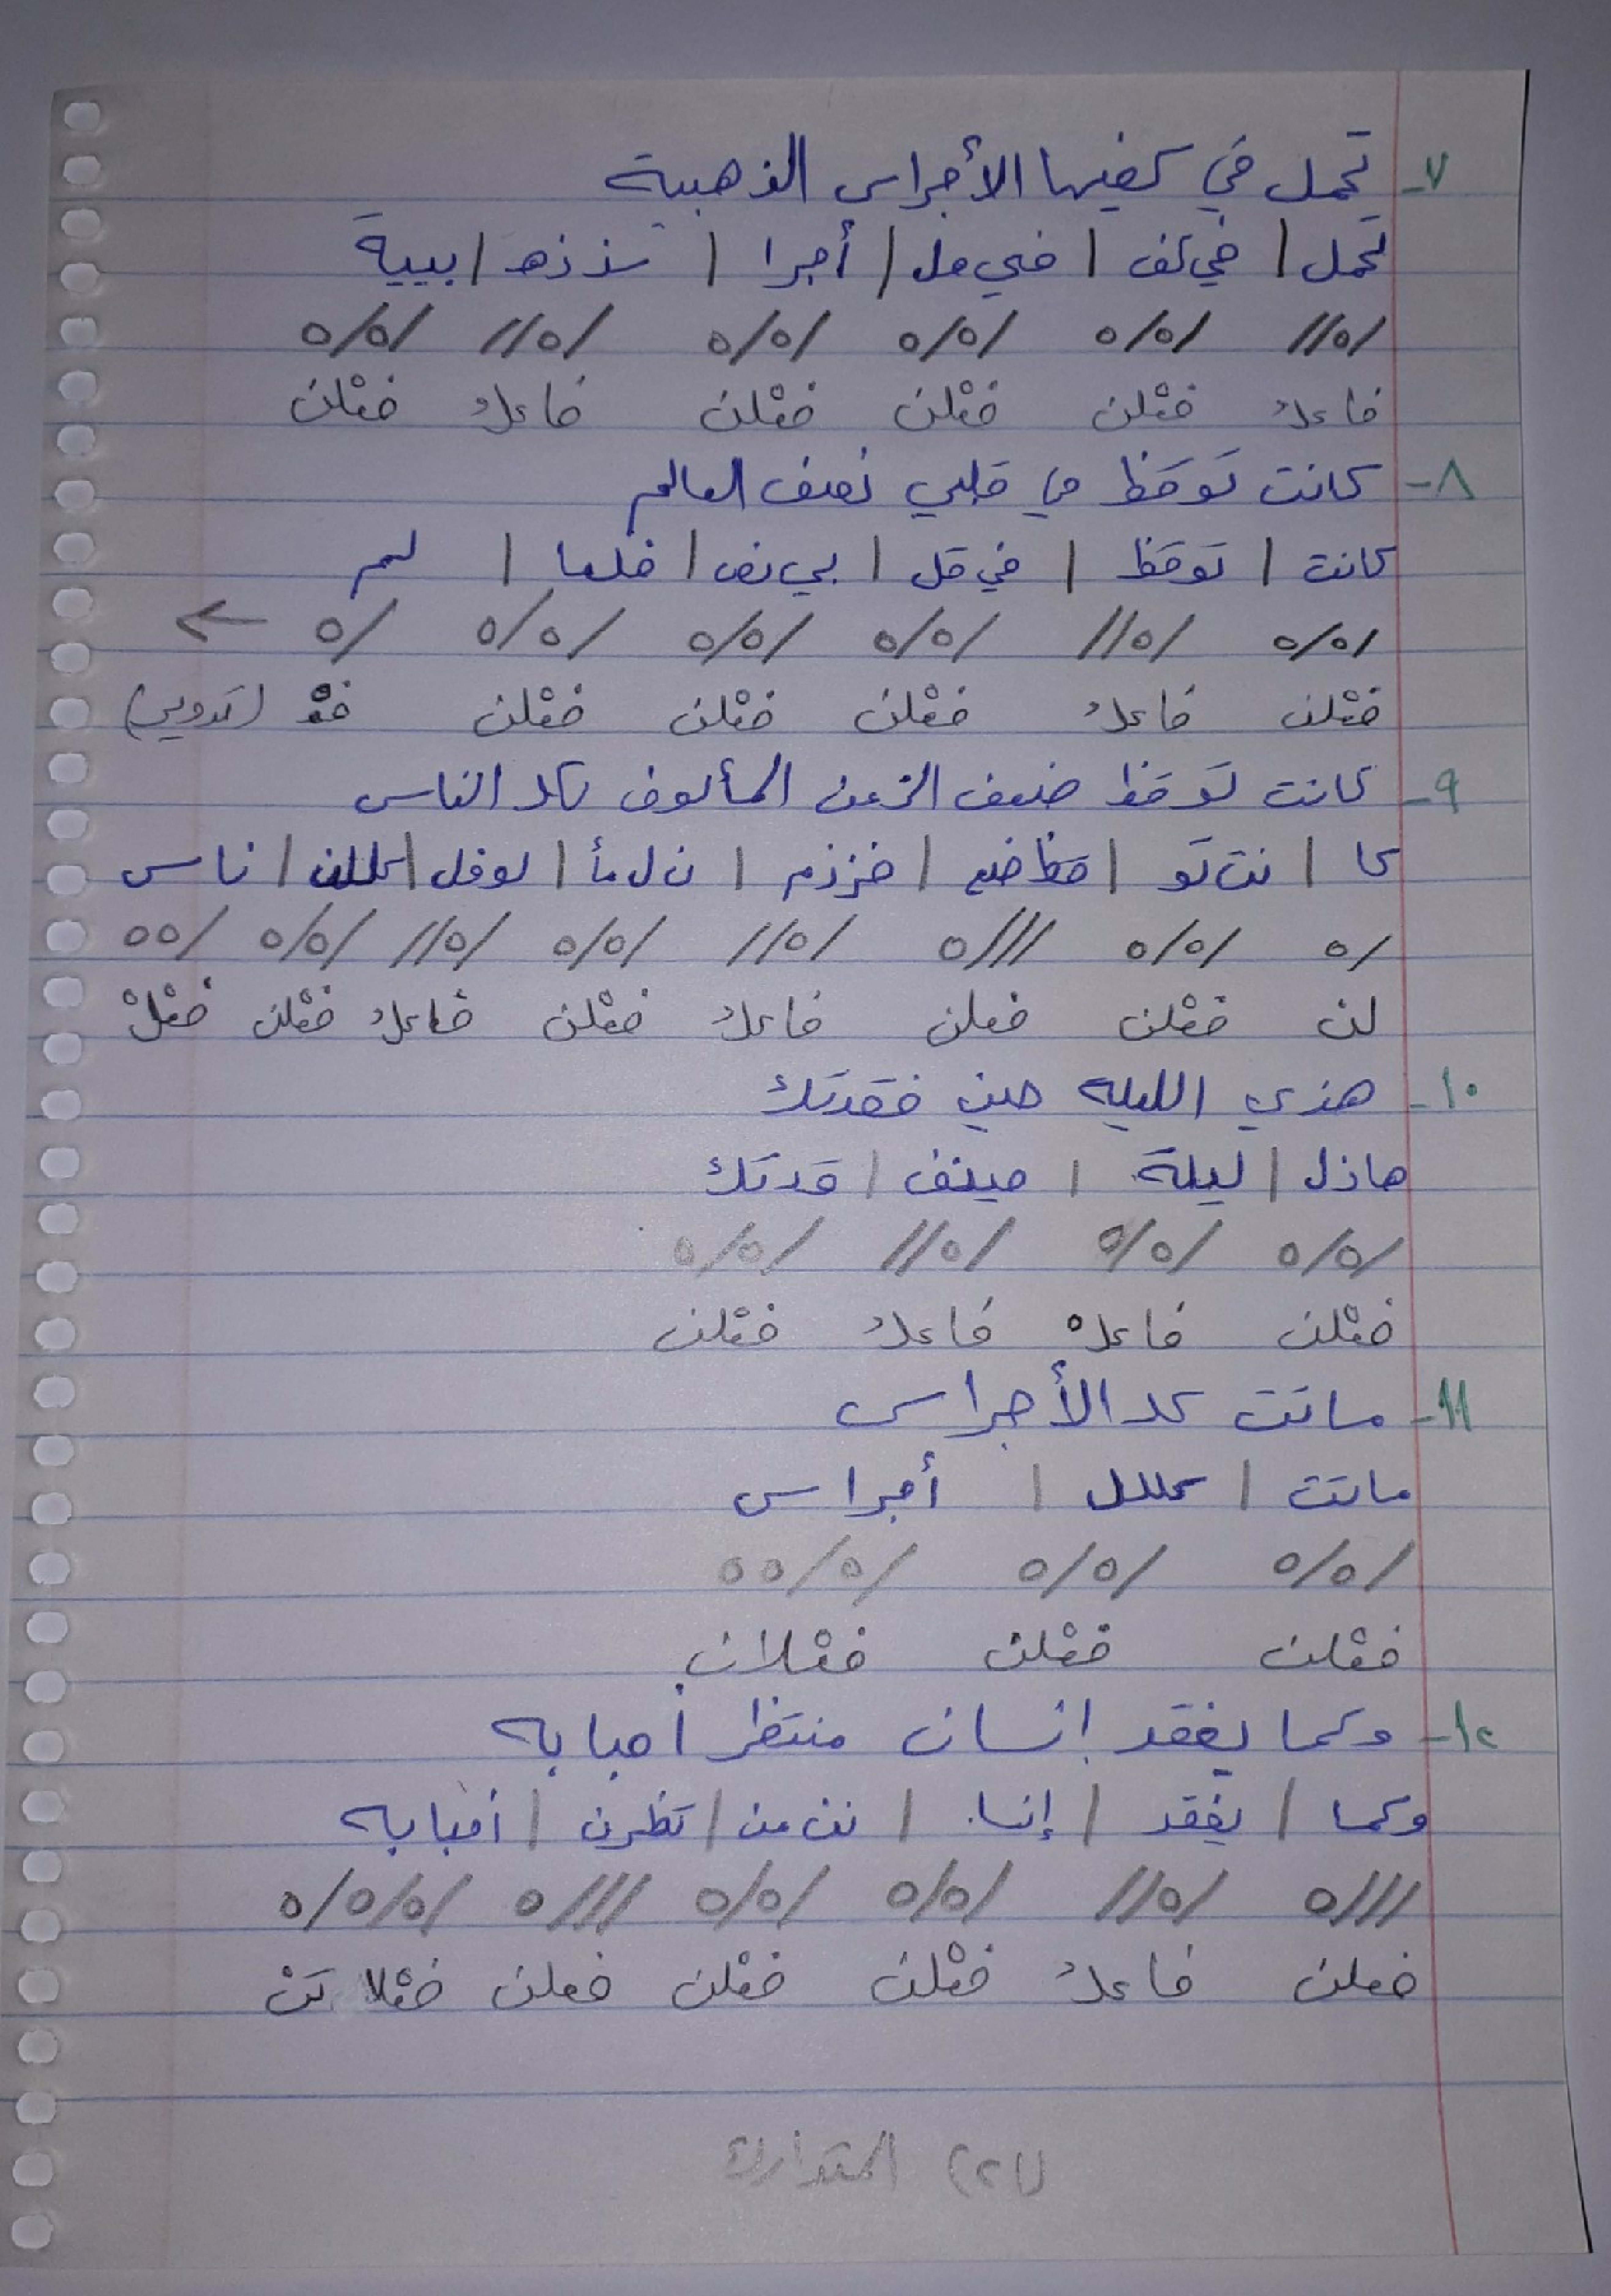 ٧- تحمل في كفيها الأجراس الذهبية
تحمل | في كف | في هل | أجرا | سذ ذه | بيية
/ه// /ه/ه /ه/ه /ه/ه /ه// /ه/ه
فاعلُ فعْلن فعْلن فعْلن فاعلُ فعْلن
٨- كانت توقظ في قلبي نصف العالم
كانت | توقظ | في قل | بي نص | فلعا | لم
/ه/ه /ه// /ه/ه /ه/ه /ه/ه /ه ←
فعْلن فاعلُ فعْلن فعْلن فعْلن فعْ (تدوير)
٩- كانت توقظ ضيف الزمن المألوف لكل الناس
كا | نت تو | قظ ضي | فززم | ن ل مأ | لوفل | كللن | ناس
/ه /ه/ه ///ه /ه// /ه/ه /ه// /ه/ه /هه
لن فعْلن فعلن فاعلُ فعْلن فاعلُ فعْلن فعْلْ
١٠- هذي الليلة حين فقدتك
هاذل | ليلة | حينف | قدتك
/ه/ه /ه/ه /ه// /ه/ه
فعْلن فاعلْ فاعلُ فعْلن
١١- ماتت كل الأجراس
ماتت | كللل | أجراس
/ه/ه /ه/ه /ه/هه
فعْلن فعْلن فعْلان
١٢- وكما يفقد إنسان منتظر أحبابه
وكما | يفقد | إنسا | نن من | تظرن | أحبابه
///ه /ه// /ه/ه /ه/ه ///ه /ه/ه/ه
فعلن فاعلُ فعْلن فعْلن فعلن فعْلا تن
(٢١) المتدارك